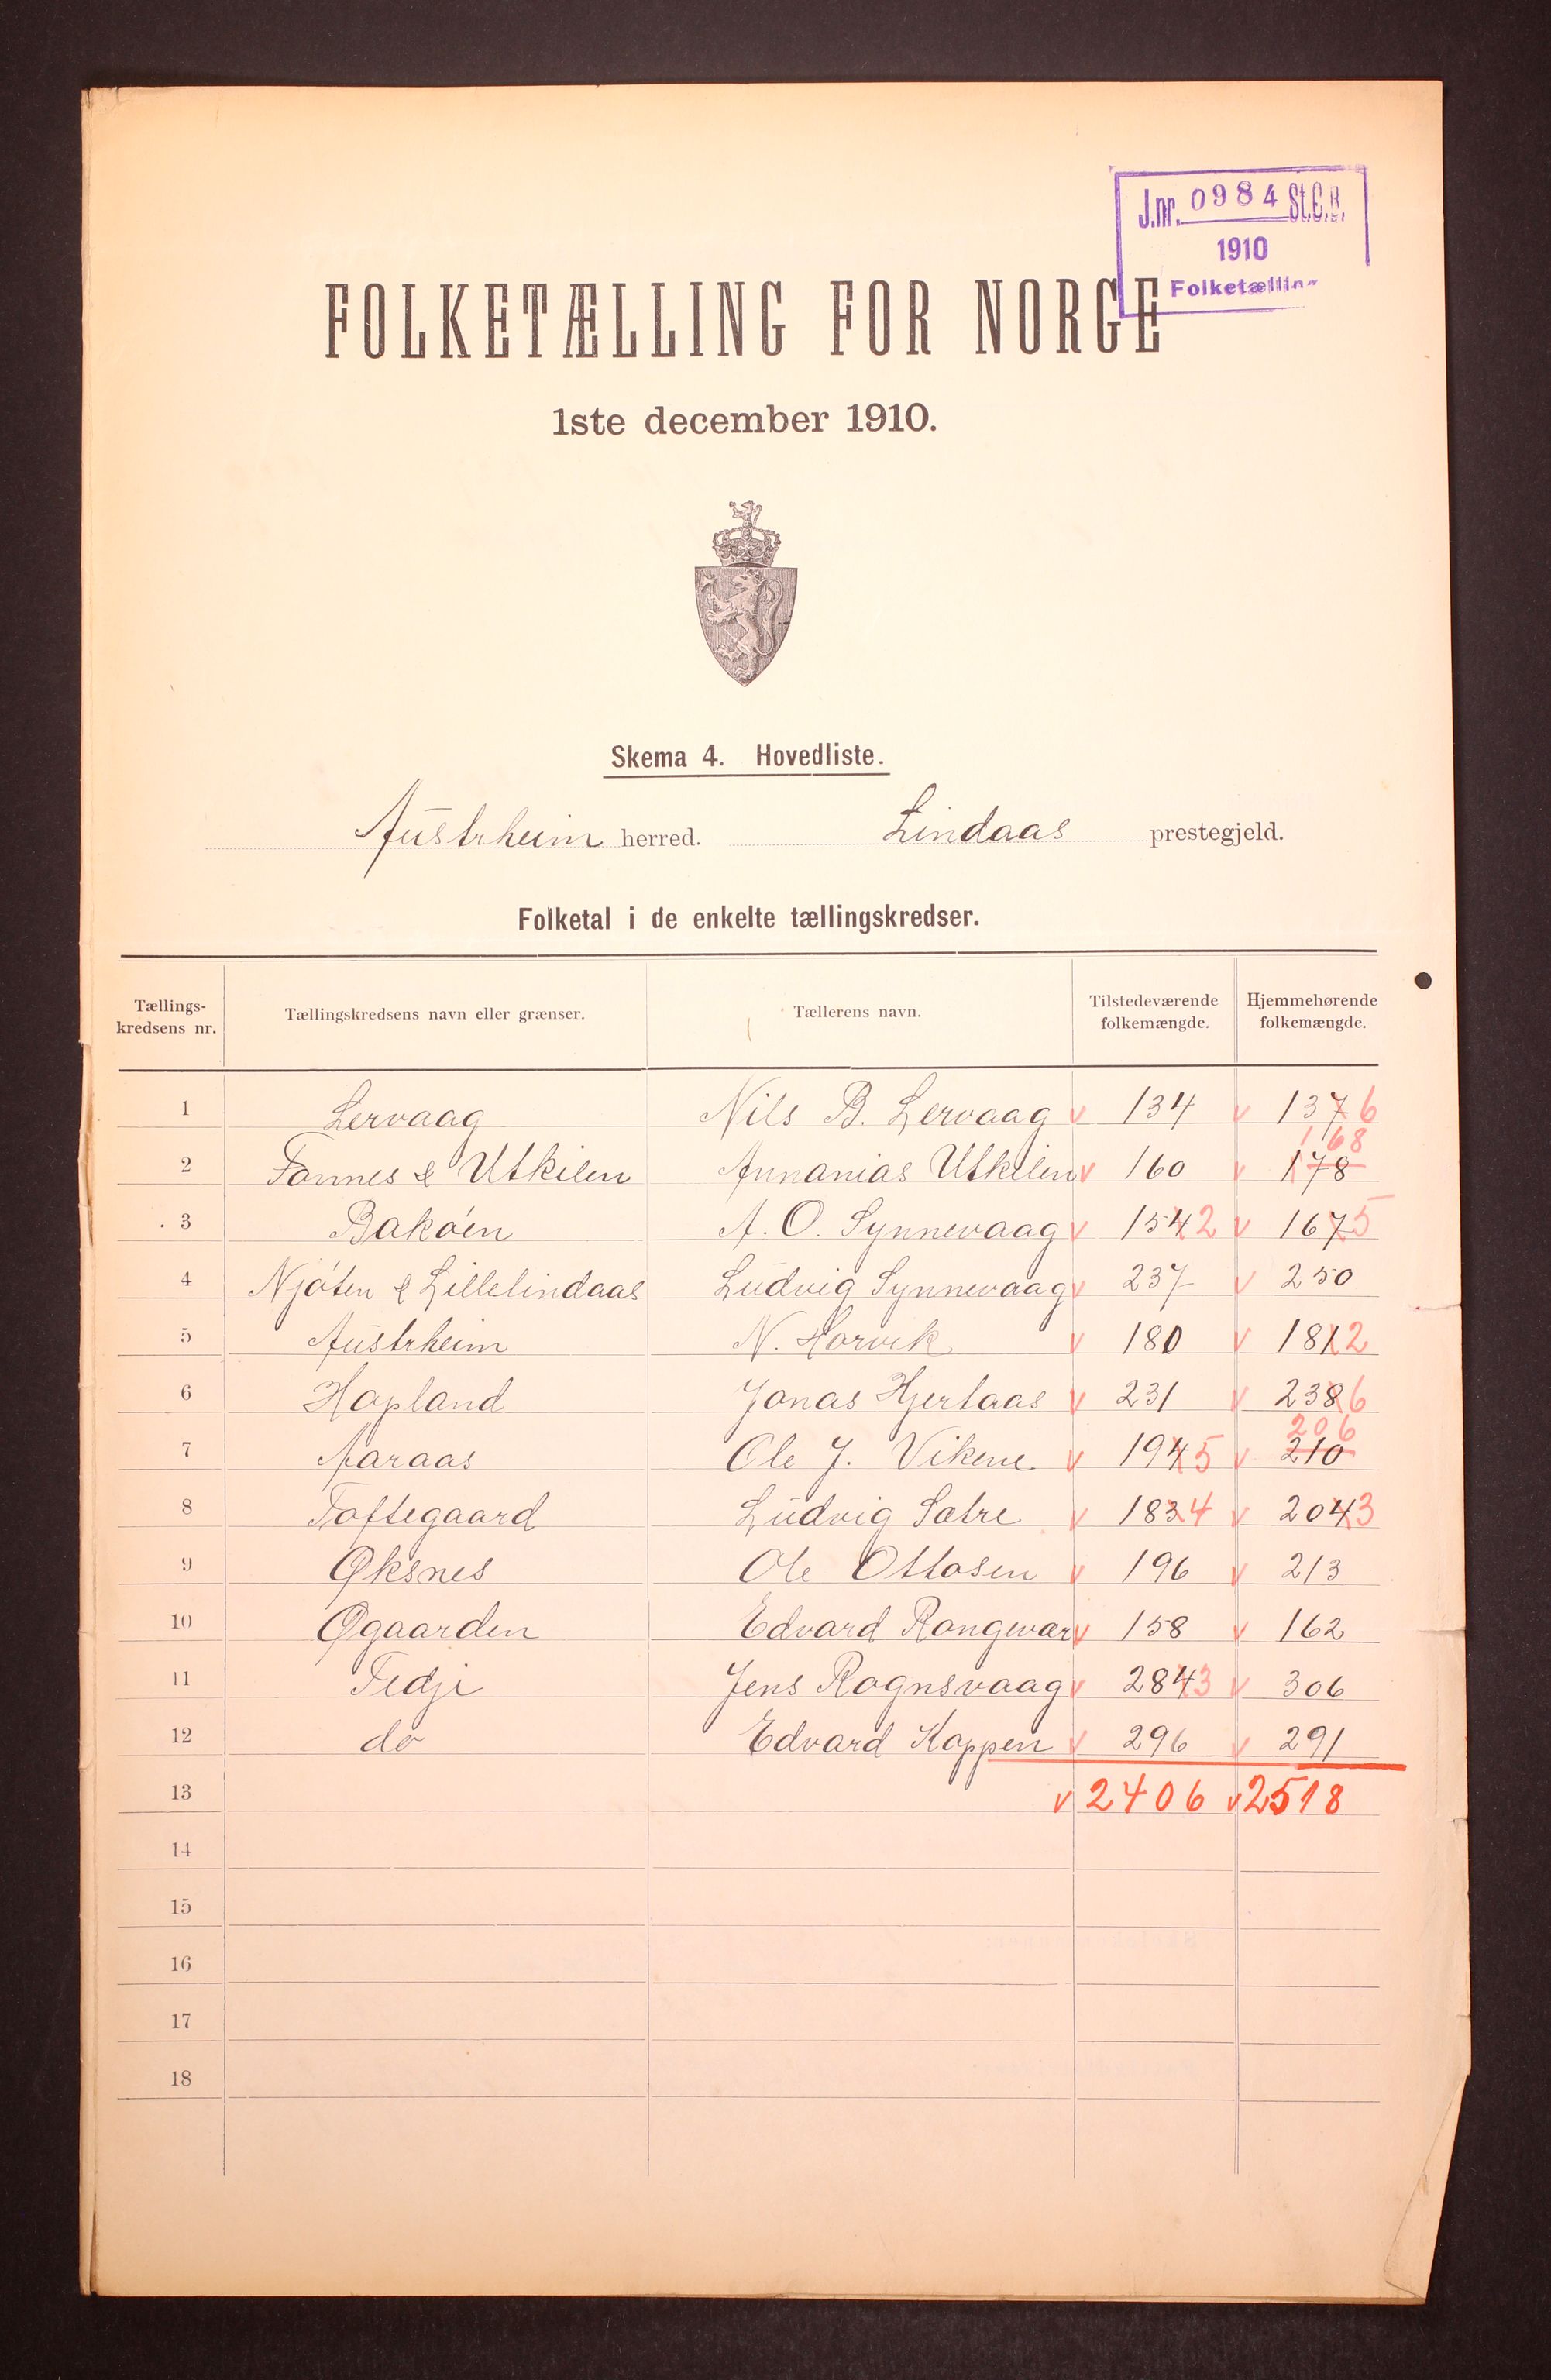 J.nr. 0984 St.C.B.
1910
Folketælling
FOLKETÆLLING FOR NORGE
1ste december 1910.
Skema 4. Hovedliste.
Austrheim herred. Lindaas prestegjeld.
Folketal i de enkelte tællingskredser.
Tællings-kredsens nr. Tællingskredsens navn eller grænser. Tællerens navn. Tilstedeværende folkemængde. Hjemmehørende folkemængde.
1 Lervaag Nils B. Lervaag v 134 v 137 6
168
2 Fonnes & Utkilen Annanias Utkilen v 160 v 178
3 Bakøen A. O. Synnevaag v 154 2 v 167 5
4 Njøten & Lillelindaas Ludvig Synnevaag v 237 v 250
5 Austrheim N. Horvik v 180 v 181 2
6 Hopland Jonas Hjertaas v 231 v 238 6
206
7 Aaraas Ole J. Vikene v 194 5 v 210
8 Toftegaard Ludvig Sætre v 183 4 v 204 3
9 Øksnes Ole Ottosen v 196 v 213
10 Øgaarden Edvard Rongevær v 158 v 162
11 Fedje Jens Rognsvaag v 284 3 v 306
12 do Edvard Koppen v 296 v 291
13 v 2406 v 2518
14
15
16
17
18